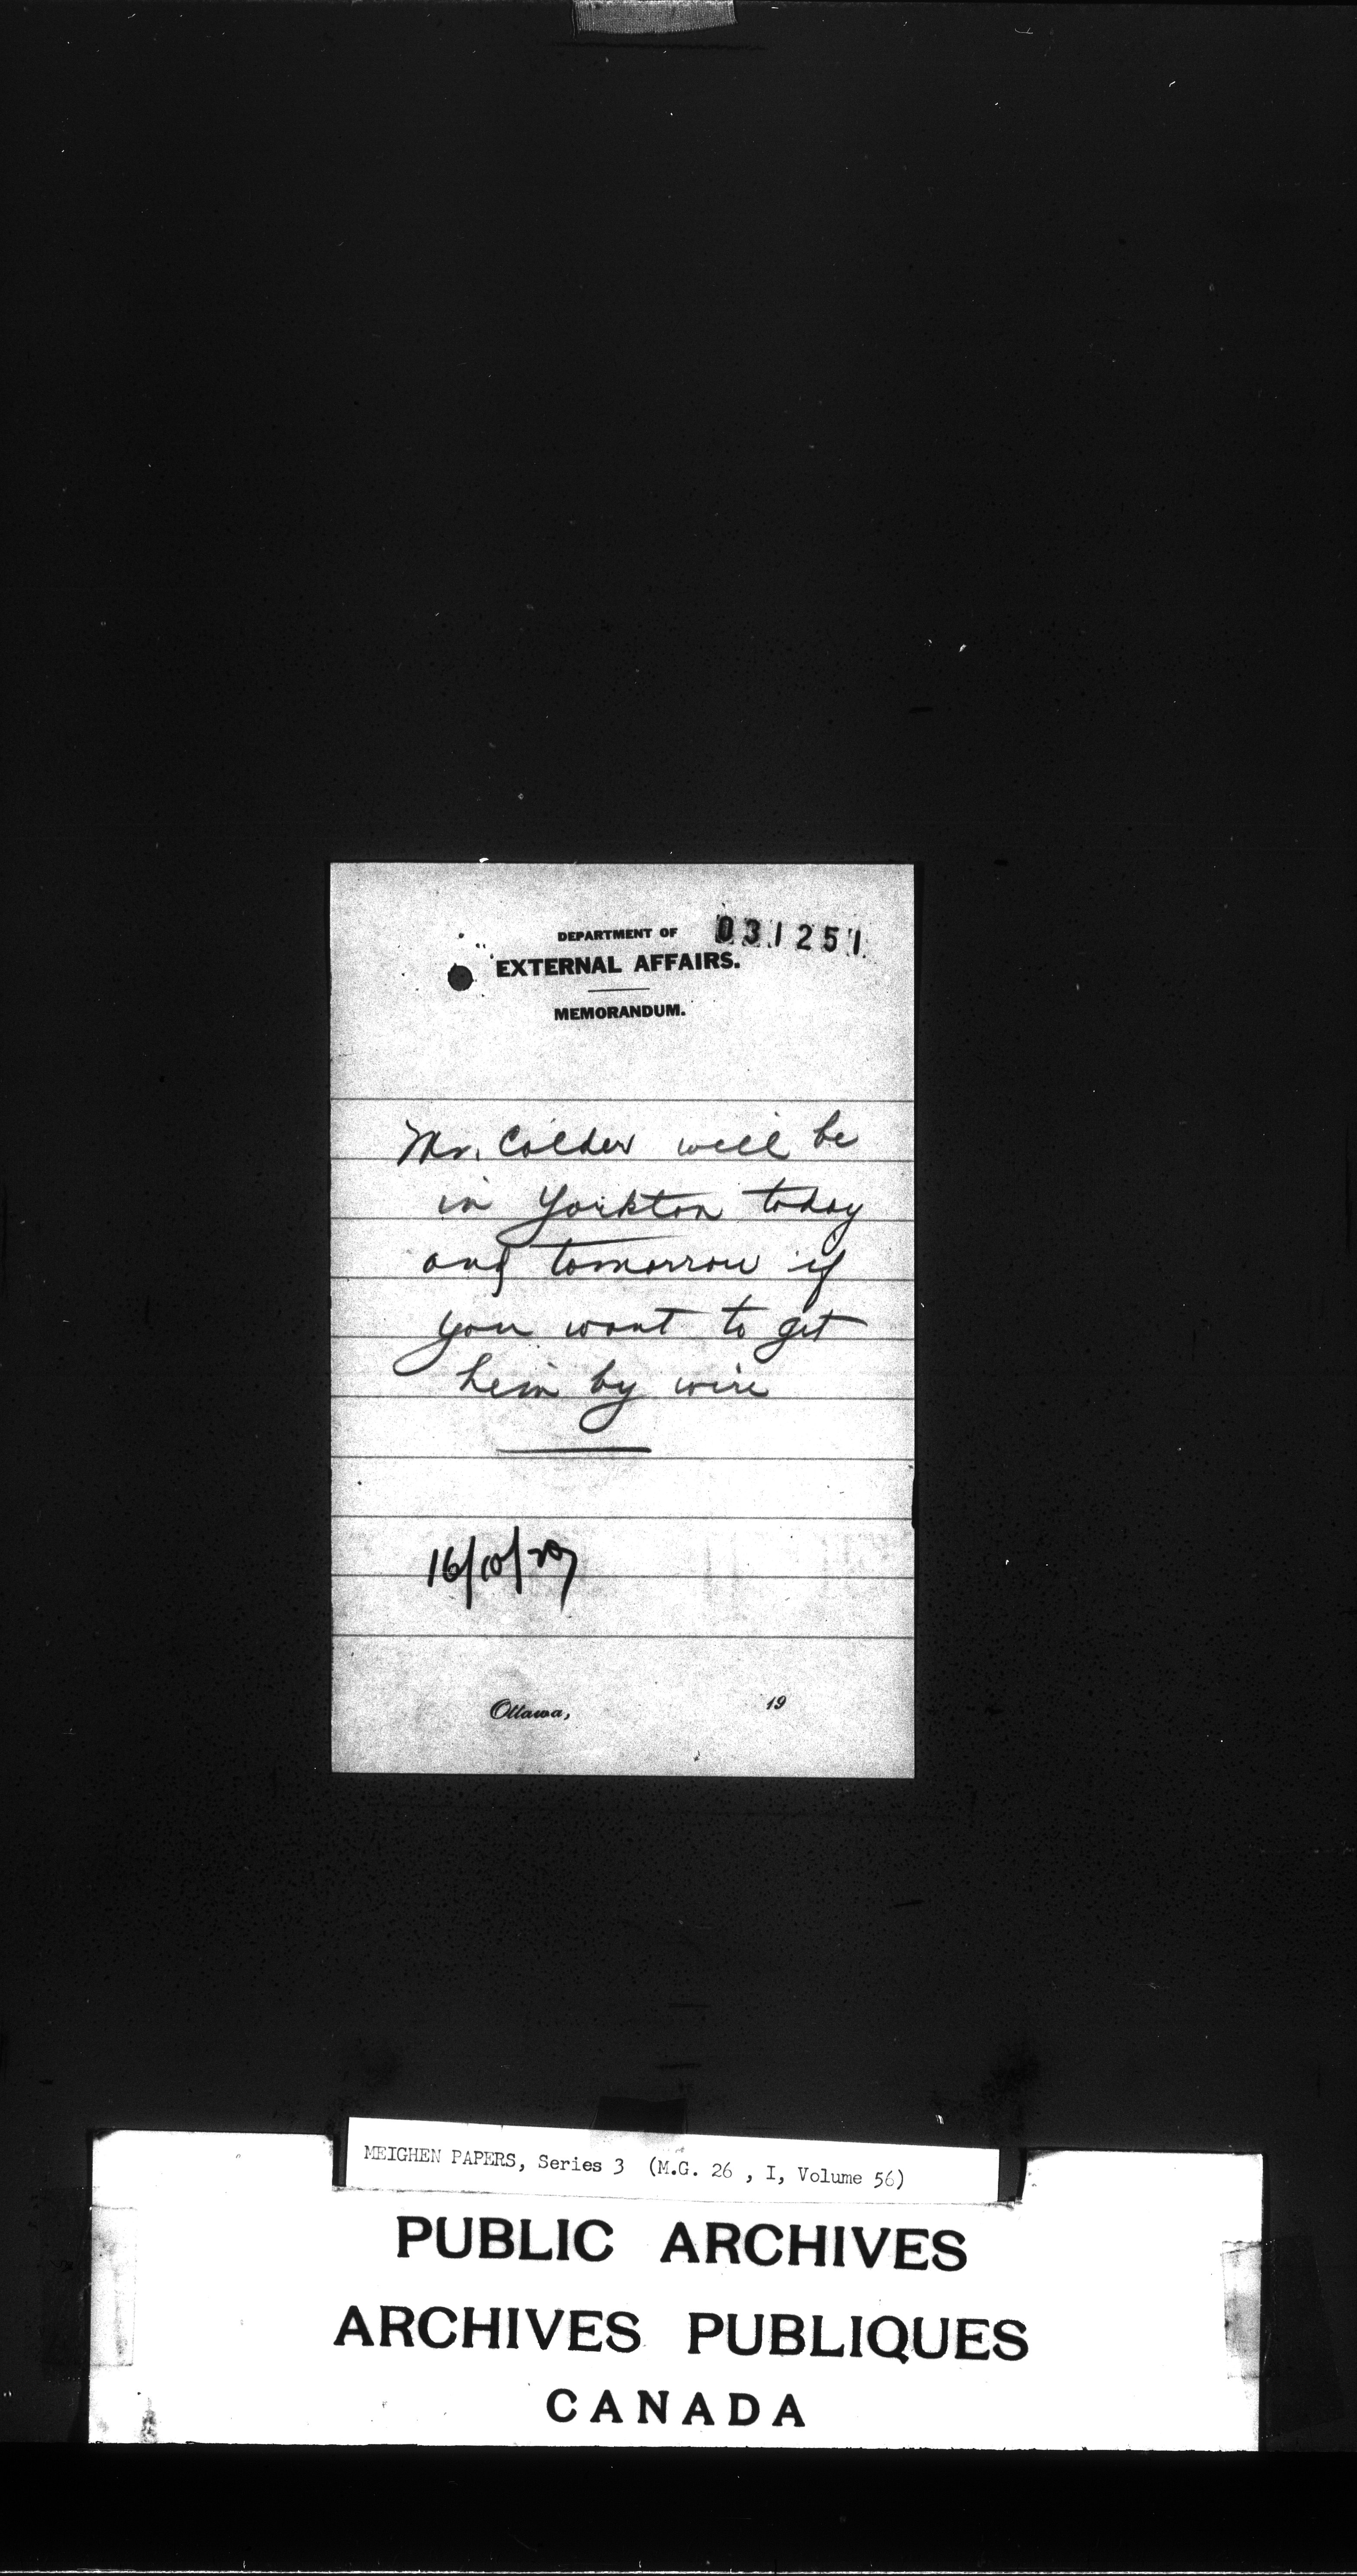 DEPARTMENT OF 031251
EXTERNAL AFFAIRS.
MEMORANDUM.
Mr. Calder will be
in Yorkton today
and tomorrow if
you want to get
him by wire
16/10/20
Ottawa, 19
MEIGHEN PAPERS, Series 3 (M.G. 26 , I, Volume 56)
PUBLIC ARCHIVES
ARCHIVES PUBLIQUES
CANADA